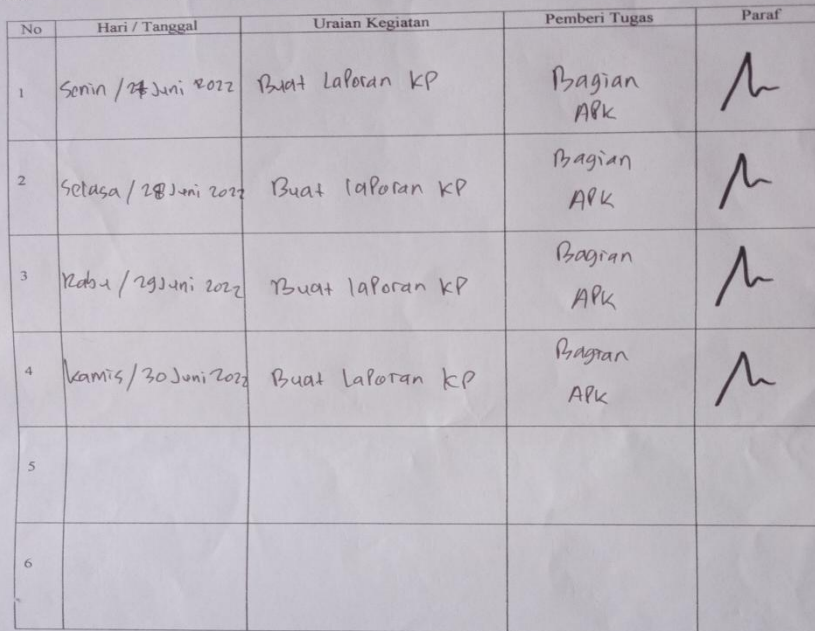 No Hari / Tanggal Uraian Kegiatan Pemberi Tugas Paraf
1 Senin / 27 Juni 2022 Buat Laporan KP Bagian APK
2 Selasa / 28 Juni 2022 Buat laporan KP Bagian APK
3 Rabu / 29 Juni 2022 Buat laporan KP Bagian APK
4 Kamis / 30 Juni 2022 Buat Laporan KP Bagian APK
5
6